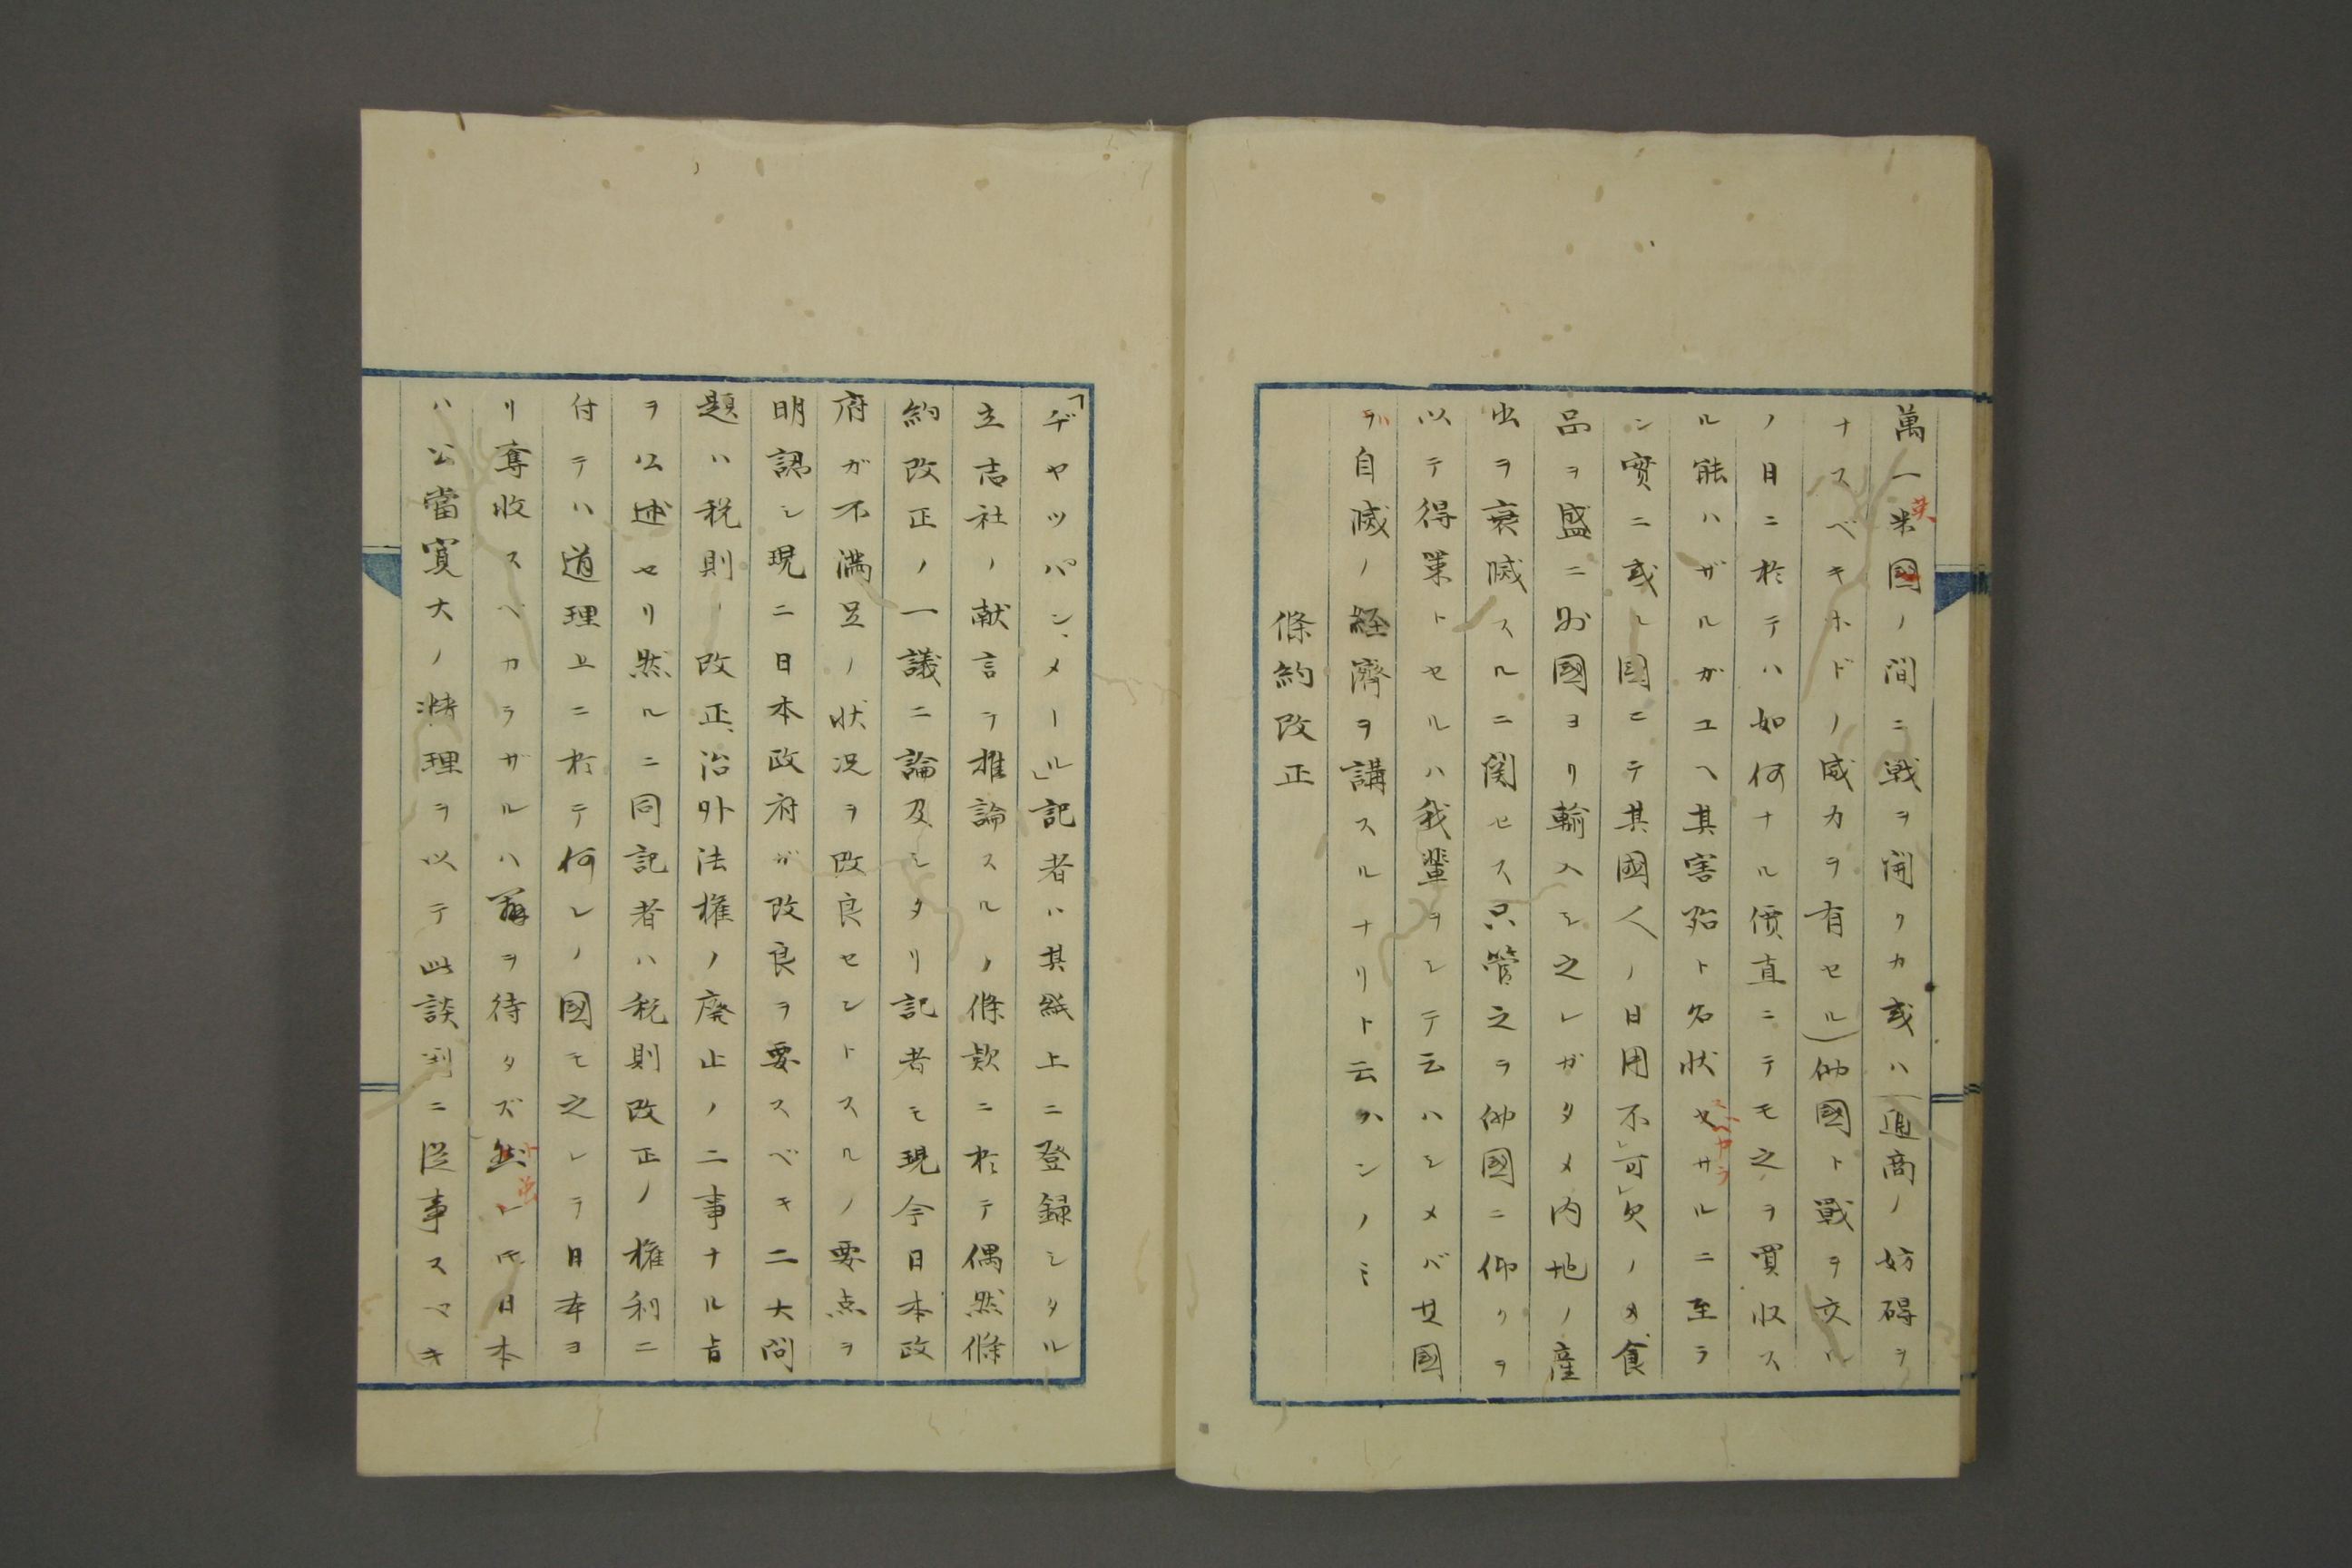 萬一米國ノ間ニ戦ヲ開クカ或ハ通商ノ妨碍ヲ
英
ナスベキホドノ威力ヲ有セル他國ト戰ヲ交ル
ノ日ニ於テハ如何ナル價直ニテモ之ヲ買収ス
ル能ハザルガユヘ其害殆ト名状セサルニ至ラ
スベカラ
ン実ニ或ル國ニテ其國人ノ日用不可欠ノ食
品ヲ盛ニ外國ヨリ輸入シ之レガタメ内地ノ産
出ヲ衰滅スルニ関セス只管之ヲ他國ニ仰クヲ
以テ得策トセルハ我輩ヲシテ云ハシメバ其國
ヲ自滅ノ経濟ヲ講スルナリト云ハンノミ
ハ
條約改正
「ヂヤツパン、メール」記者ハ其紙上ニ登録シタル
立志社ノ献言ヲ推論スルノ條款ニ於テ偶然條
約改正ノ一議ニ論及シタリ記者モ現今日本政
府ガ不満足ノ状況ヲ改良セントスルノ要点ヲ
明認シ現ニ日本政府ガ改良ヲ要スベキ二大問
題ハ税則ノ改正、治外法権ノ廃止ノ二事ナル旨
ヲ公述セリ然ルニ同記者ハ税則改正ノ権利ニ
付テハ道理上ニ於テ何レノ國モ之レヲ日本ヨ
リ奪收スベカラザルハ辯ヲ待タズ然レ𪜈日本
ハ公當寛大ノ情理ヲ以テ此談判ニ従事スベキ